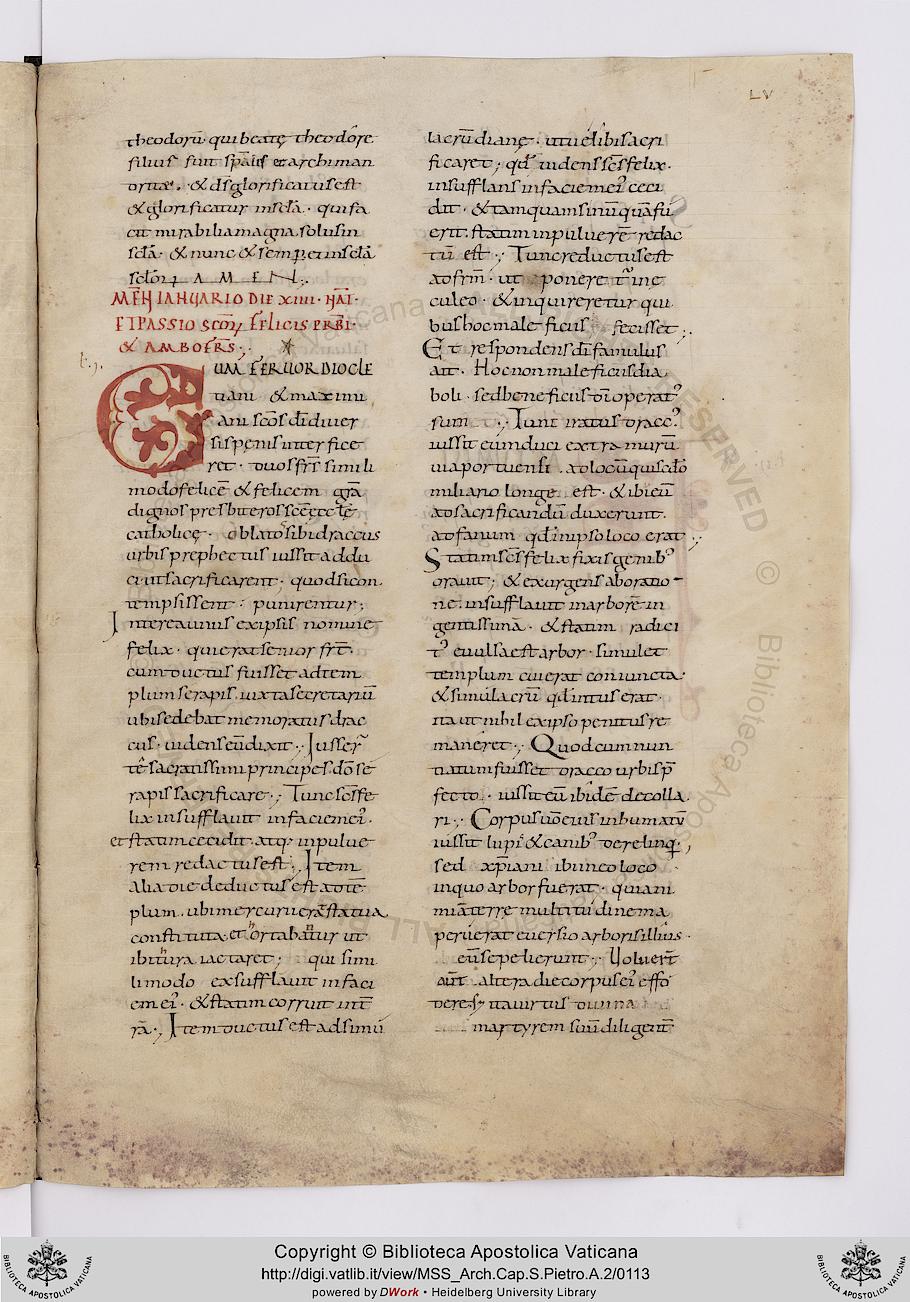 LV
theodorū qui beatę theodore
filius fuit sp̄alis et archiman
orite. & ds̄ glorificatus est
& glorificatur in scl̄a · qui fa
cit mirabilia magna solus in
scl̄a · & nunc & semper et in scl̄a
scl̄oꝝ A M E N ;
MEN̄ IANUARIO DIE XIIII · NAT̄ ·
ET PASSIO SC̄OꝜ FELICIS PRBI ·
& AMBO FR̄S ;
CUM FERUOR DIOCLE
tiani & maximi
ani sc̄os dī diuer
sis penis interfice
ret · duos fr̄s simili
modo felicē & felicem gr̄a
dignos presbiteros sc̄ę eccl̄ę
catholicę · oblatos sibi draccus
urbis prephectus iussit addu
ci ut sacrificarent · quod si con
tempsissent · punirentur ;
Interea unus ex ipsis nomine
felix · qui erat senior frt̄ ·
cum ductus fuisset ad tem
plum serapis iuxta secretariū
ubi sedebat memoratus drac
cus · uidens eū dixit ·, Iusser̄
tē sacratissimi principes dō se
rapis sacrificare ·, Tunc sc̄s fe
lix insufflauit in faciem ei᷒ ·
et statim cecidit · atq; in pulue
rem redactus est ·, Item
alia die deductus est ad tē
plum · ubi mercurii erat statua
constituta · et hortabatur ut
ibi thura iactaret ; qui simi
li modo exsufflauit in faci
em ei᷒ · & statim corruit in t̄
rā ·, Item ductus est ad simu
lacrū dianę · ut uel ibi sacri
ficaret ; qd᷒ uidens sc̄s felix ·
insufflans in faciem ei᷒ ceci
dit · & tamquam si nūquā fu
erit · statim in puluerē redac
tū est ·, Tunc reductus est
ad frm̄ · ut poneret᷒ in e
culeo · & inquireretur qui
bus hoc maleficus fecisset ·,
Et respondens dī famulus
ait · Hoc non maleficus dia
boli · sed beneficus dn̄i operat᷒
sum ·, Tunc iratus dracc᷒
iussit eum duci extra murū
uia portuensi · ad locū qui sc̄do
miliario longe est · & ibi eū
ad sacrificandū duxerunt ·
ad fanum qd̄ in ipso loco erat ·,
Statim sc̄s felix fixis genib᷒
orauit ; & exurgens ab oratio
ne · insufflauit in arborē in
gentissimā · & statim radici
t᷒ euulsa est arbor · simul et
templum cui erat coniuncta ·
& simulacrū qd̄ intus erat ·
ita ut nihil ex ipso penitus re
maneret ·, Quod cum nun
tiatum fuisset dracco urbis p̄
fecto · iussit eū ibidē decolla
ri ·, Corpus uō eius inhumatū
iussit lupi᷒ & canib᷒ derelinq̄ ·,
sed xp̄iani ibi in eo loco
in quo arbor fuerat · quia ni
miā terre multitudinem a
peruerat euersio arboris illius ·
eū sepelierunt ·, Uoluer̄t
aūt · altera die corpus ei᷒ effo
dere · sy ita uirtus diuina
martyrem suū diligent̄